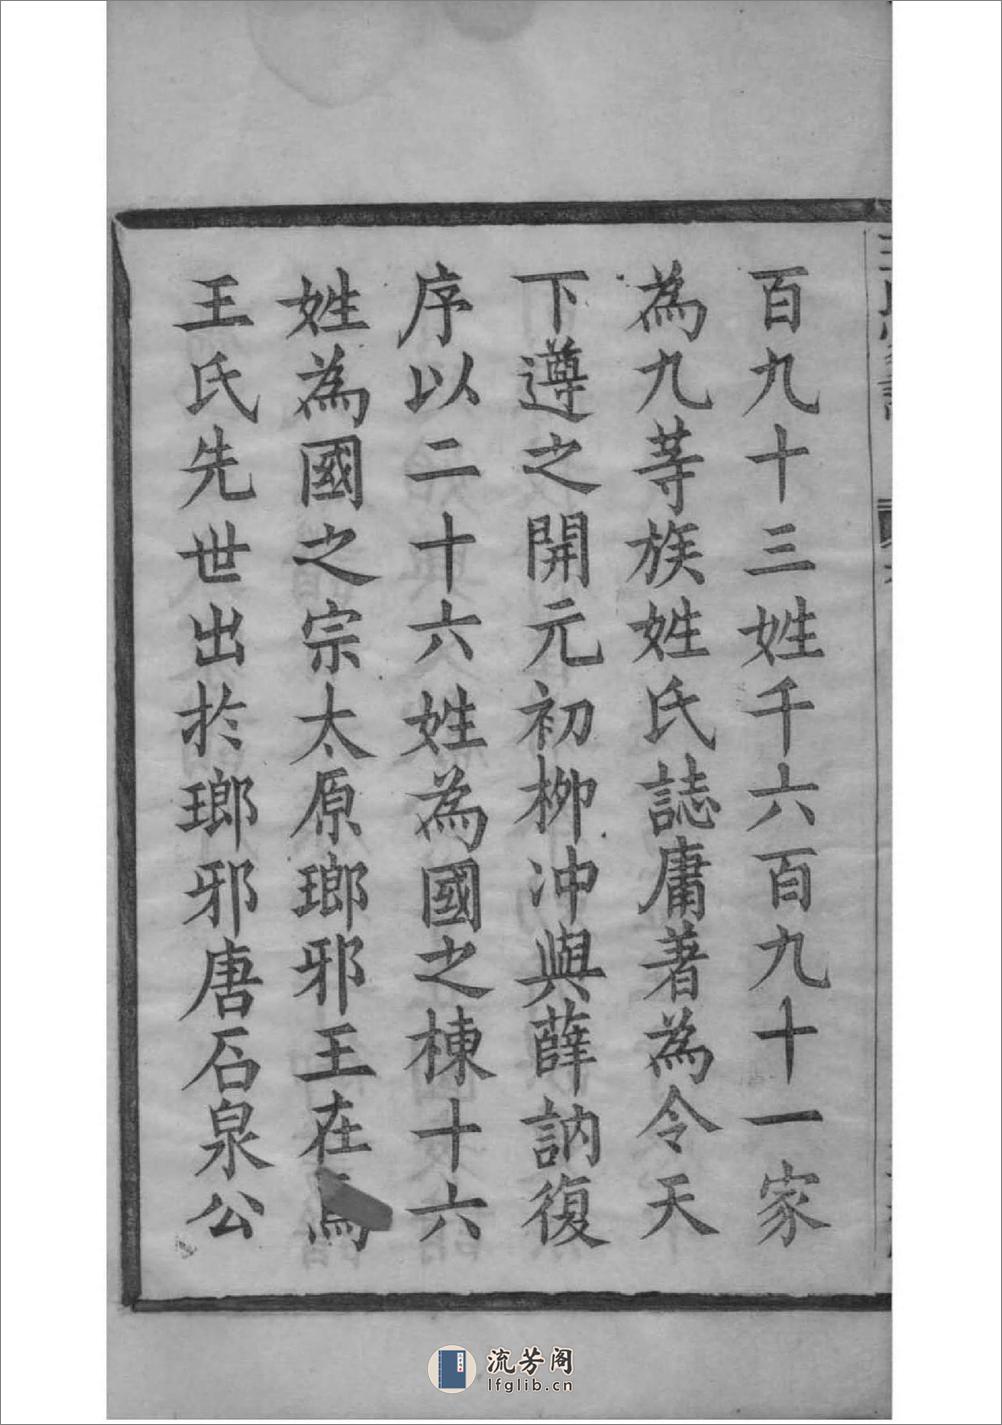 百九十三姓千六百九十一家
為九等族姓氏誌庸著為令天
下遵之開元初柳沖與薛訥復
序以二十六姓為國之棟十六
姓為國之宗太原瑯邪王在焉
王氏先世出於瑯邪唐石泉公
流芳阁
lfglib.cn